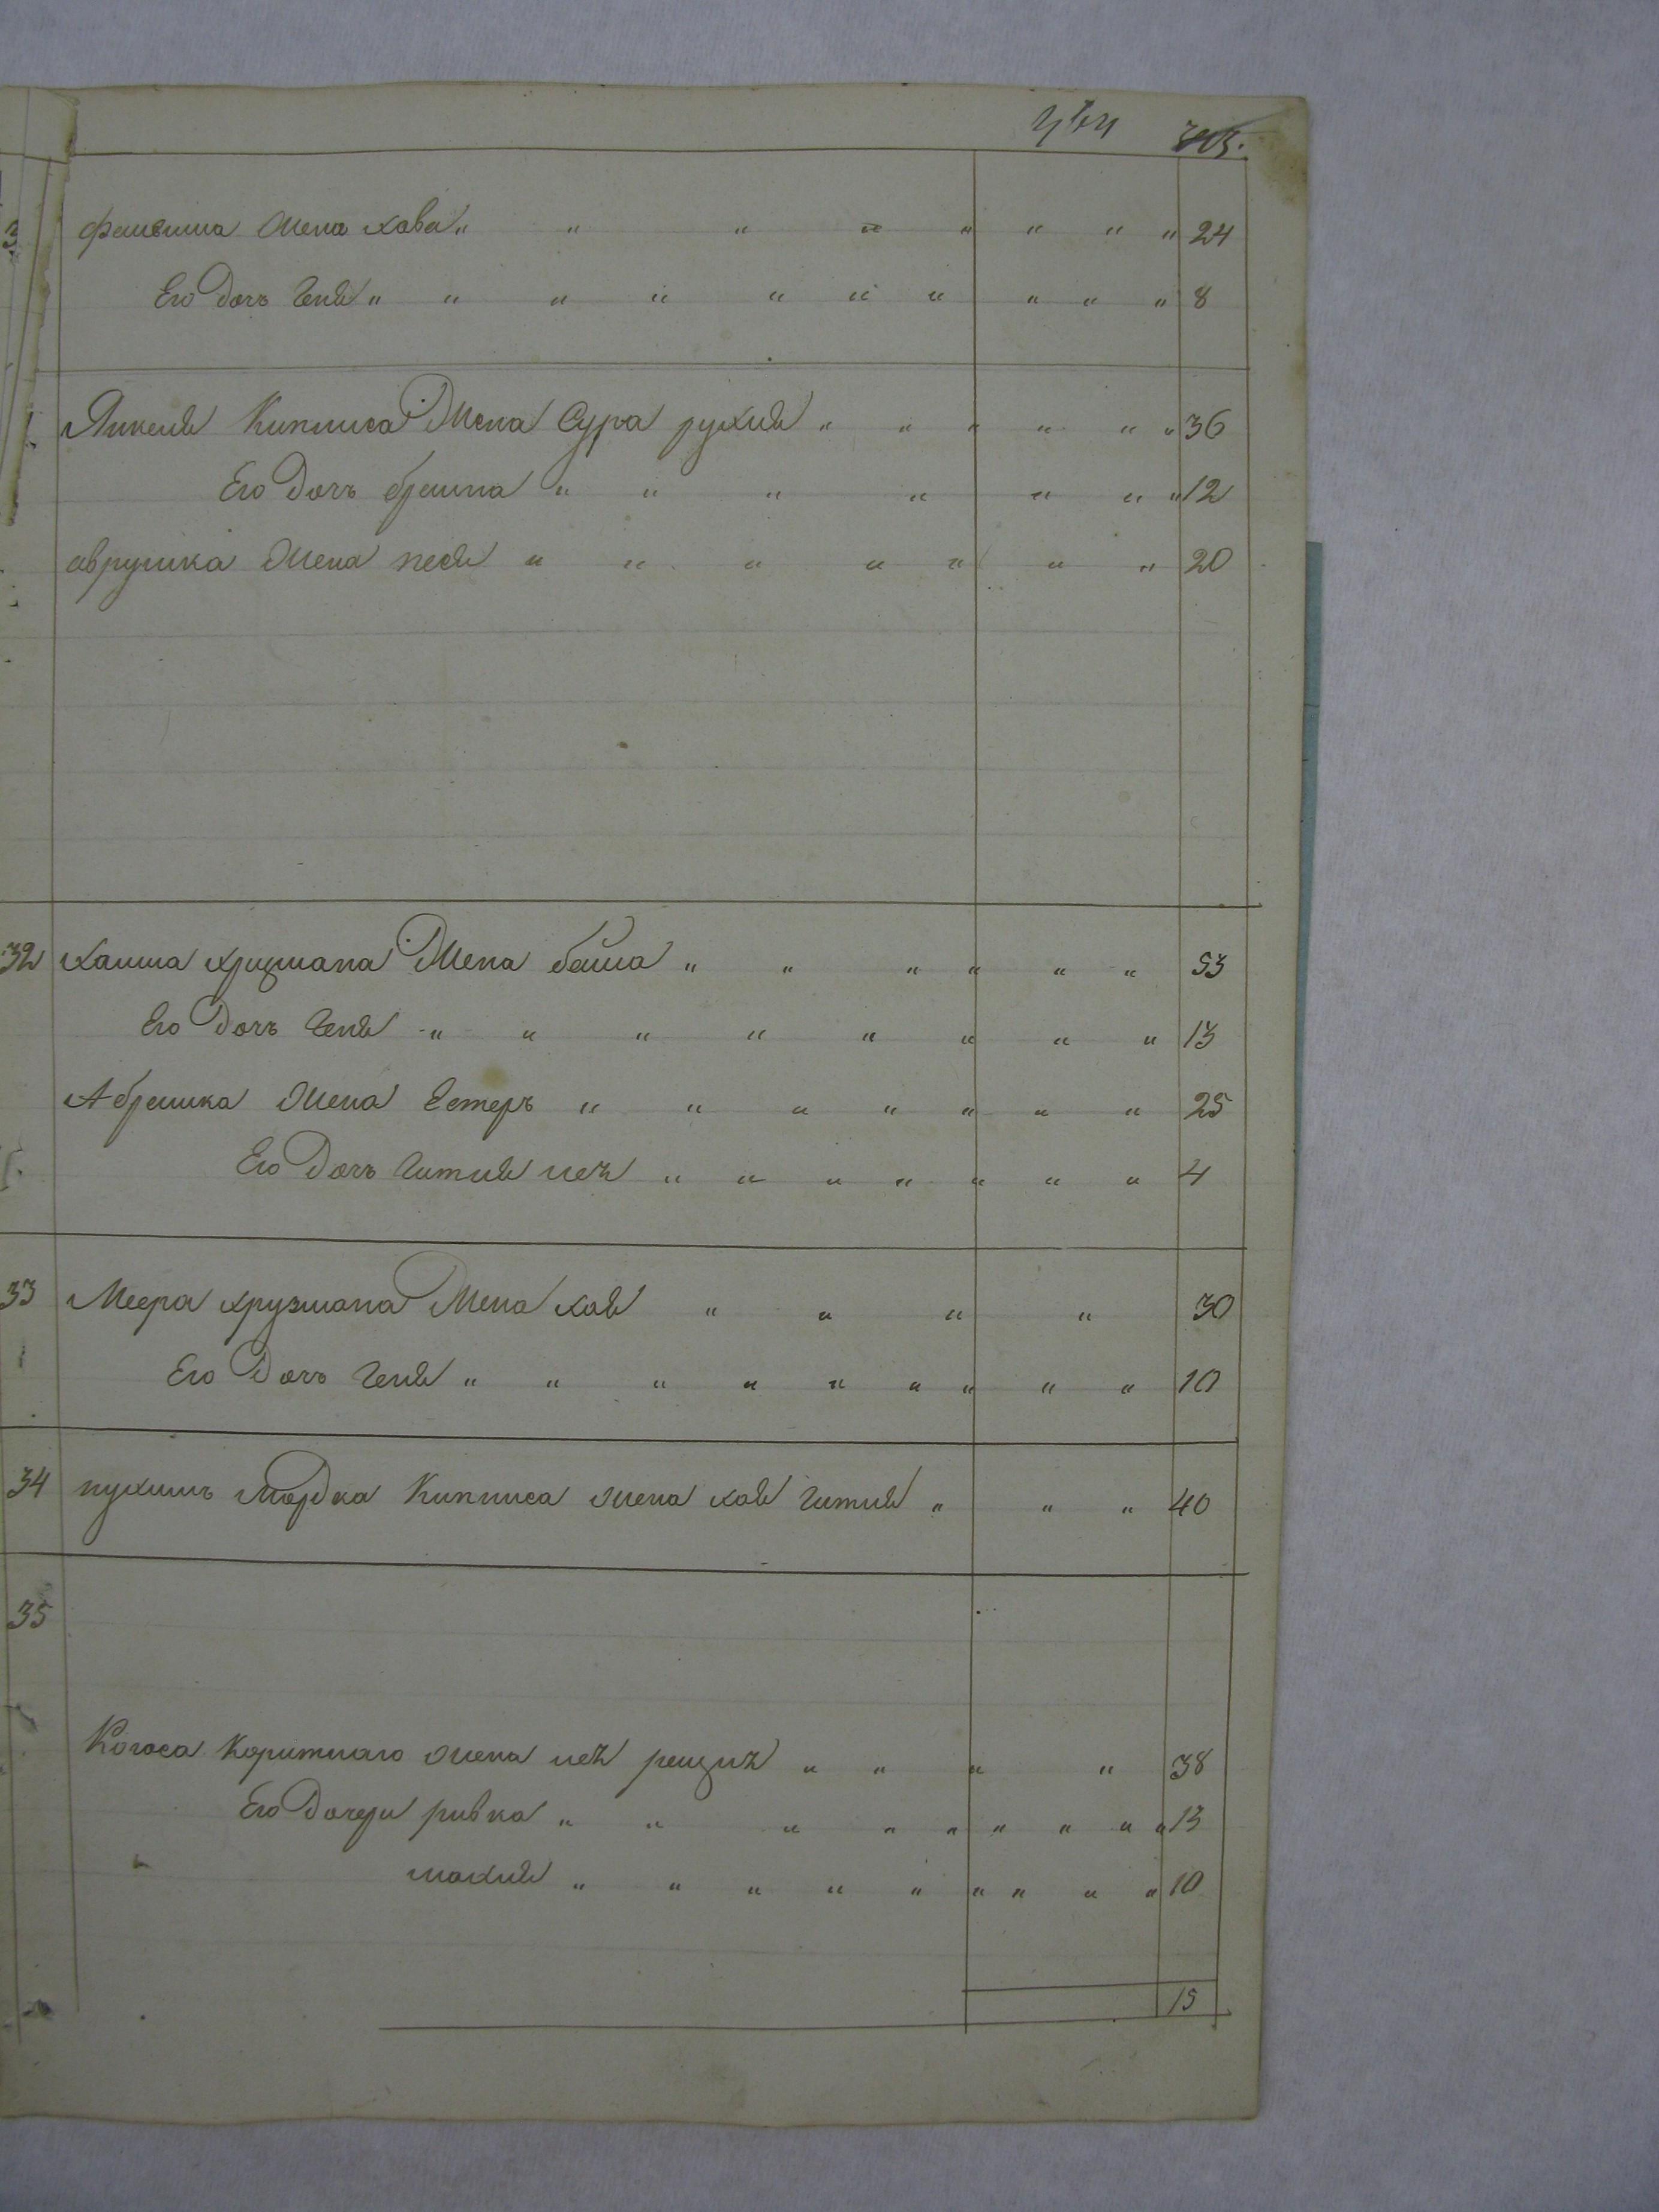 фаивиша жена хава " " " " " " " " 24
Его дочь Гене " " " " " " " " " " 8
Янкеля Кипниса Жена Сура рухля " " " " " " 36
Его дочь брейна " " " " " " " 12
аврумка жена песя " " " " " " " 20
32 хаима хризмана Жена бейла " " " " " " 53
Его дочь Геня " " " " " " " " 13
Абрамка жена Естеръ " " " " " " " 25
Его дочь Гитля лея " " " " " " " 4
33 Меера хрузмана Жена хая " " " " 30
Его дочь Геня " " " " " " " " " 10
34 Мордка Кипниса жена хая Гитля " " " 40
35
Коритнаго жена лея " " " " 38
Его дочери ривка " " " " " " " " " 13
малка " " " " " " " " " 10
15